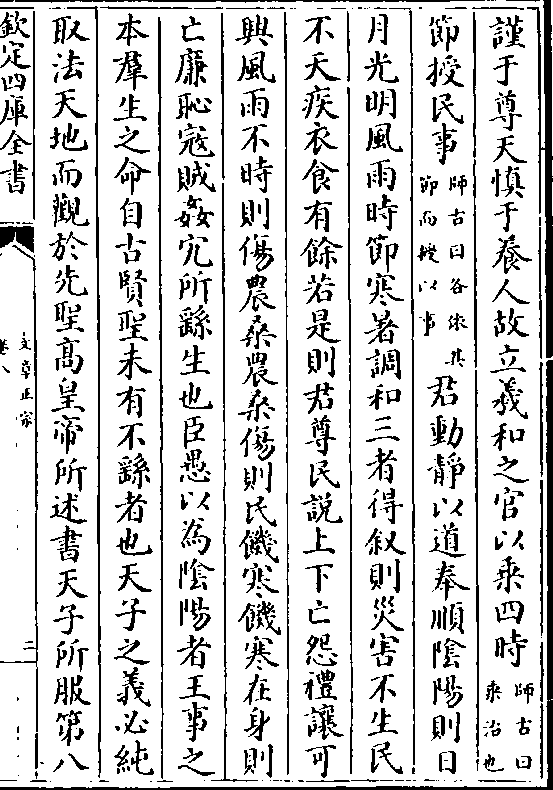 謹于尊天慎于養人故立羲和之官以乗四時師古曰乗治也
節授民事師古曰各依其節而授以事君動靜以道奉順陰陽則日
月光明風雨時節寒暑調和三者得叙則災害不生民
不夭疾衣食有餘若是則君尊民說上下亡怨禮讓可
興風雨不時則傷農桑農桑傷則民饑寒饑寒在身則
亡廉恥寇賊姦宄所繇生也臣愚以為陰陽者王事之
本羣生之命自古賢聖未有不繇者也天子之義必純
取法天地而觀於先聖高皇帝所述書天子所服第八
欽定四庫全書
文章正宗
卷八
二